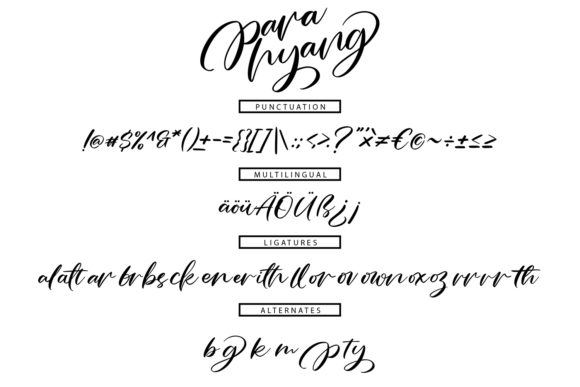 Para
hyang
PUNCTUATION
!@#$%^&*()_+-={}[]|\:;<>.?"'`×≠€©~÷±≤≥
MULTILINGUAL
äöüÄÖÜß¿¡
LIGATURES
al at t ar br bs ck en er ith ll or ov own ox oz rr rr th
ALTERNATES
b g k m p ty